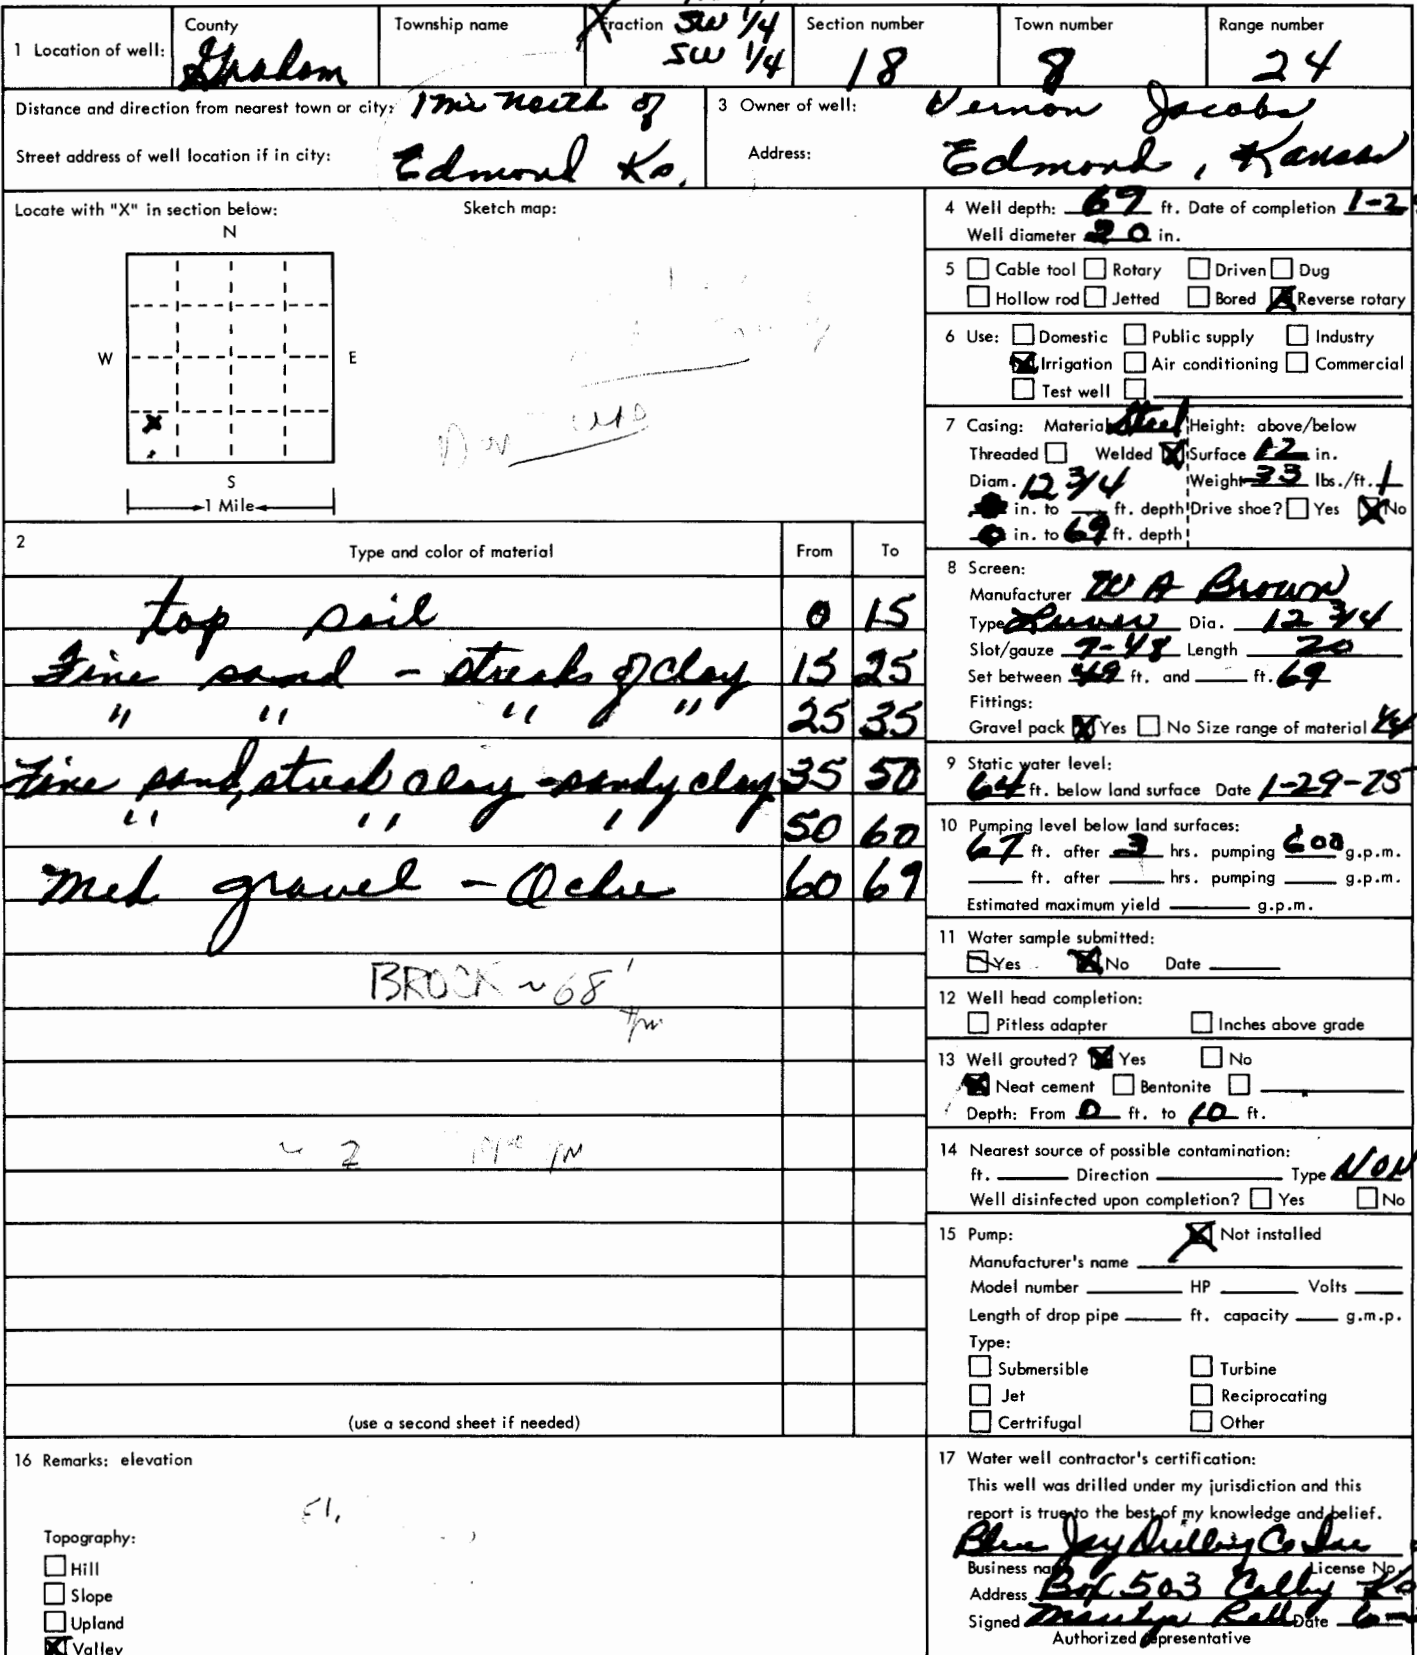 County Township name Fraction SW 1/4 Section number Town number Range number
1 Location of well: Graham SW 1/4 18 8 24
Distance and direction from nearest town or city: 1 mi North of
Street address of well location if in city: Edmond Ks.
3 Owner of well: Vernon Jacobs
Address: Edmond, Kansas
Locate with "X" in section below: Sketch map:
N
W E
X
S
1 Mile
2 Type and color of material From To
top soil 0 15
Fine sand - streaks of clay 15 25
" " " " 25 35
Fine sand, streak clay - sandy clay 35 50
" " " 50 60
Med gravel - Ochre 60 69
BROCK ~ 68'
(use a second sheet if needed)
16 Remarks: elevation
El.
Topography:
Hill
Slope
Upland
X Valley
4 Well depth: 69 ft. Date of completion 1-2
Well diameter 20 in.
5 Cable tool Rotary Driven Dug
Hollow rod Jetted Bored X Reverse rotary
6 Use: Domestic Public supply Industry
X Irrigation Air conditioning Commercial
Test well
7 Casing: Material Steel Height: above/below
Threaded Welded X Surface 12 in.
Diam. 12 3/4 Weight 33 lbs./ft.
in. to ft. depth Drive shoe? Yes X No
in. to 69 ft. depth
8 Screen:
Manufacturer W A Brown
Type Dia. 12 3/4
Slot/gauze 7-48 Length 20
Set between 49 ft. and ft. 69
Fittings:
Gravel pack X Yes No Size range of material
9 Static water level:
64 ft. below land surface Date 1-29-75
10 Pumping level below land surfaces:
67 ft. after 3 hrs. pumping 600 g.p.m.
ft. after hrs. pumping g.p.m.
Estimated maximum yield g.p.m.
11 Water sample submitted:
Yes X No Date
12 Well head completion:
Pitless adapter Inches above grade
13 Well grouted? X Yes No
X Neat cement Bentonite
Depth: From 0 ft. to 10 ft.
14 Nearest source of possible contamination:
ft. Direction Type NON
Well disinfected upon completion? Yes No
15 Pump: X Not installed
Manufacturer's name
Model number HP Volts
Length of drop pipe ft. capacity g.m.p.
Type:
Submersible Turbine
Jet Reciprocating
Certrifugal Other
17 Water well contractor's certification:
This well was drilled under my jurisdiction and this
report is true to the best of my knowledge and belief.
Blue Jay Drilling Co Inc
Business name License No.
Address Box 503 Colby Ks
Signed Date 6-
Authorized representative